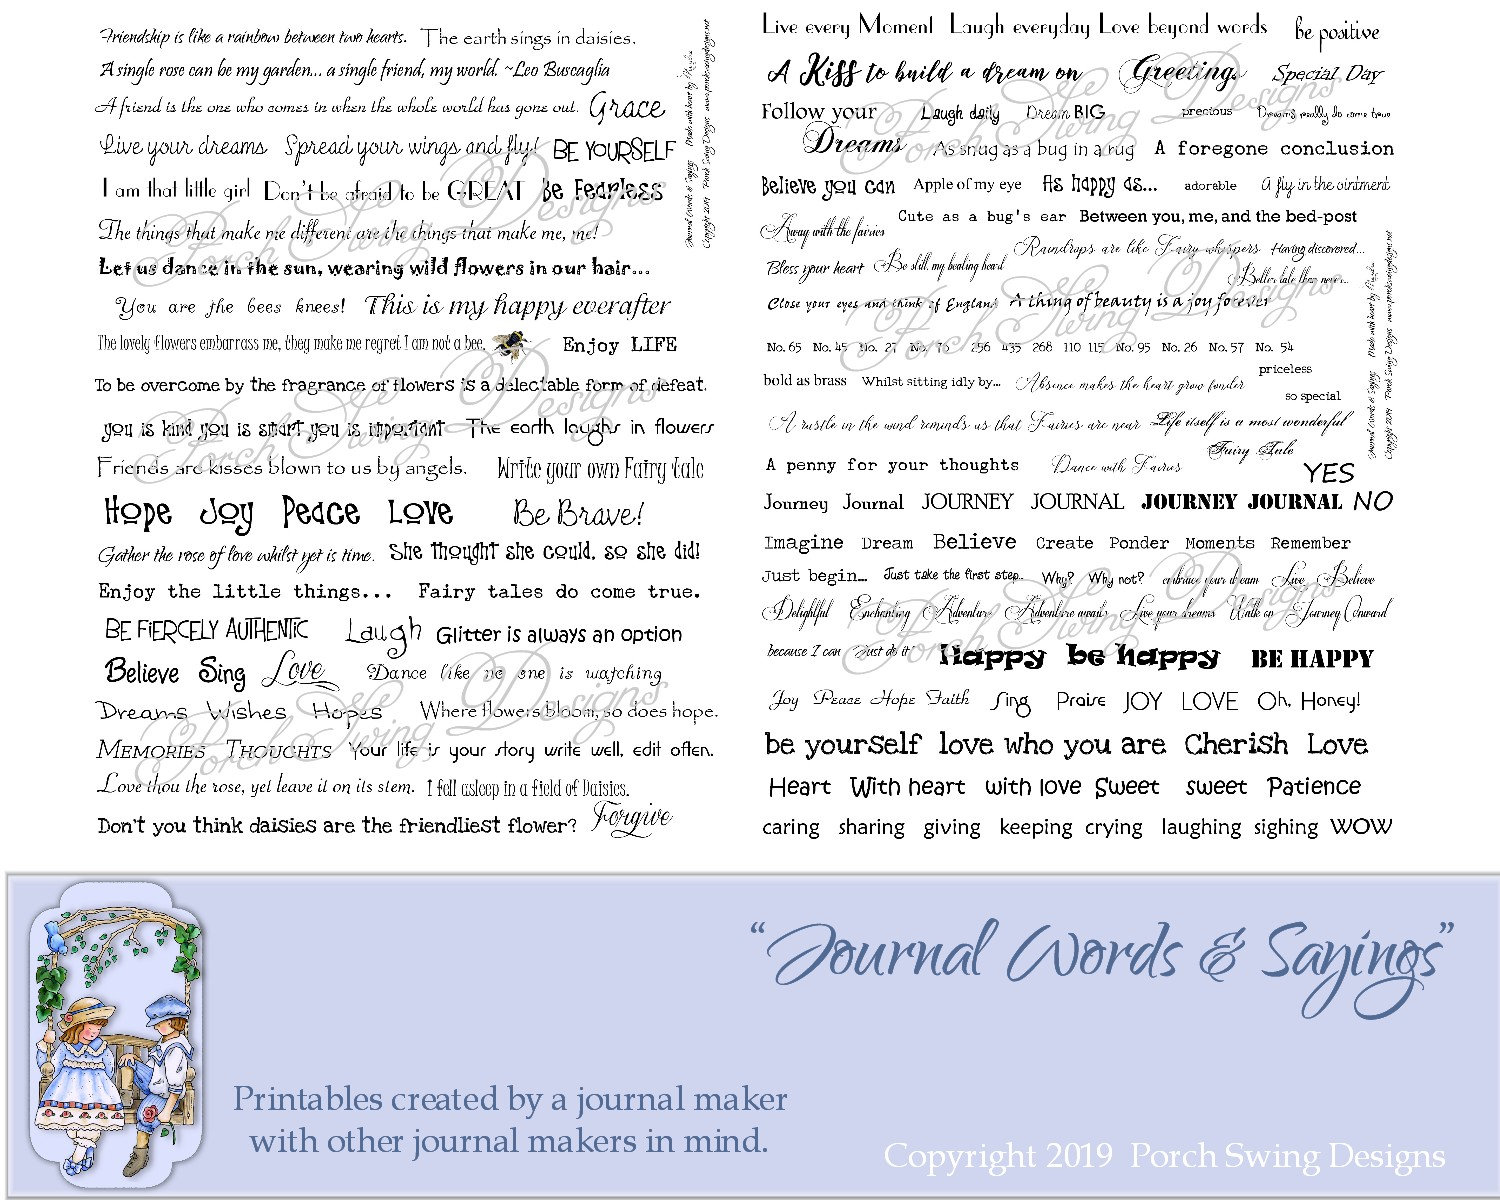 Friendship is like a rainbow between two hearts. The earth sings in daisies.
A single rose can be my garden... a single friend, my world. ~Leo Buscaglia
A friend is the one who comes in when the whole world has gone out. Grace
Live your dreams Spread your wings and fly! BE YOURSELF
I am that little girl Don't be afraid to be GREAT Be Fearless
The things that make me different are the things that make me, me!
Let us dance in the sun, wearing wild flowers in our hair...
You are the bees knees! This is my happy everafter
The lovely flowers embarrass me, they make me regret I am not a bee. Enjoy LIFE
To be overcome by the fragrance of flowers is a delectable form of defeat.
you is kind you is smart you is important The earth laughs in flowers
Friends are kisses blown to us by angels. Write your own Fairy tale
Hope Joy Peace Love Be Brave!
Gather the rose of love whilst yet is time. She thought she could, so she did!
Enjoy the little things... Fairy tales do come true.
BE FiERCELY AUTHENTiC Laugh Glitter is always an option
Believe Sing Love Dance like no one is watching
Dreams Wishes Hopes Where flowers bloom, so does hope.
MEMORIES THOUGHTS Your life is your story write well, edit often.
Love thou the rose, yet leave it on its stem. I fell asleep in a field of Daisies.
Don't you think daisies are the friendliest flower? Forgive
Journal Words & Sayings Made with heart by
Copyright 2019 Porch Swing Designs www.porchswingdesigns.net
Porch Swing Designs
Porch Swing Designs
Porch Swing Designs
Live every Moment Laugh everyday Love beyond words be positive
A Kiss to build a dream on Greetings Special Day
Follow your Dreams Laugh daily Dream BIG precious Dreams really do come true
As snug as a bug in a rug A foregone conclusion
Believe you can Apple of my eye As happy as... adorable A fly in the ointment
Away with the fairies Cute as a bug's ear Between you, me, and the bed-post
Bless your heart Be still, my beating heart Raindrops are like Fairy whispers Having discovered...
Better late than never...
Close your eyes and think of England A thing of beauty is a joy forever
No. 65 No. 45 No. 27 No. 76 256 435 268 110 115 No. 95 No. 26 No. 57 No. 54
bold as brass Whilst sitting idly by... Absence makes the heart grow fonder priceless
so special
A rustle in the wind reminds us that Fairies are near Life itself is a most wonderful Fairy Tale
A penny for your thoughts Dance with Fairies YES
Journey Journal JOURNEY JOURNAL JOURNEY JOURNAL NO
Imagine Dream Believe Create Ponder Moments Remember
Just begin... Just take the first step.. Why? Why not? embrace your dream Live Believe
Delightful Enchanting Adventure Adventure awaits Live your dreams Walk on Journey Onward
because I can Just do it! Happy be happy BE HAPPY
Joy Peace Hope Faith Sing Praise JOY LOVE Oh, Honey!
be yourself love who you are Cherish Love
Heart With heart with love Sweet sweet Patience
caring sharing giving keeping crying laughing sighing WOW
Journal Words & Sayings Made with heart by
Copyright 2019 Porch Swing Designs www.porchswingdesigns.net
Porch Swing Designs
Porch Swing Designs
Porch Swing Designs
"Journal Words & Sayings"
Printables created by a journal maker
with other journal makers in mind.
Copyright 2019 Porch Swing Designs